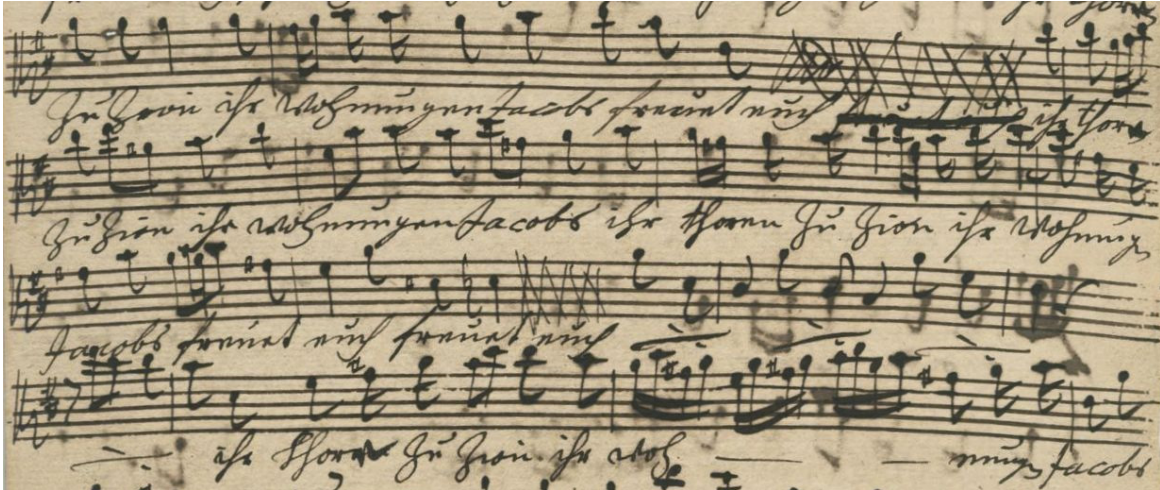 Zu Zion ihr Wohnungen Jacobs freuet euch ihr thoren
Zu Zion ihr wohnungen Jacobs ihr thoren Zu Zion ihr Wohnungen
Jacobs freuet euch freuet euch
ihr thoren Zu Zion ihr woh nungen Jacobs